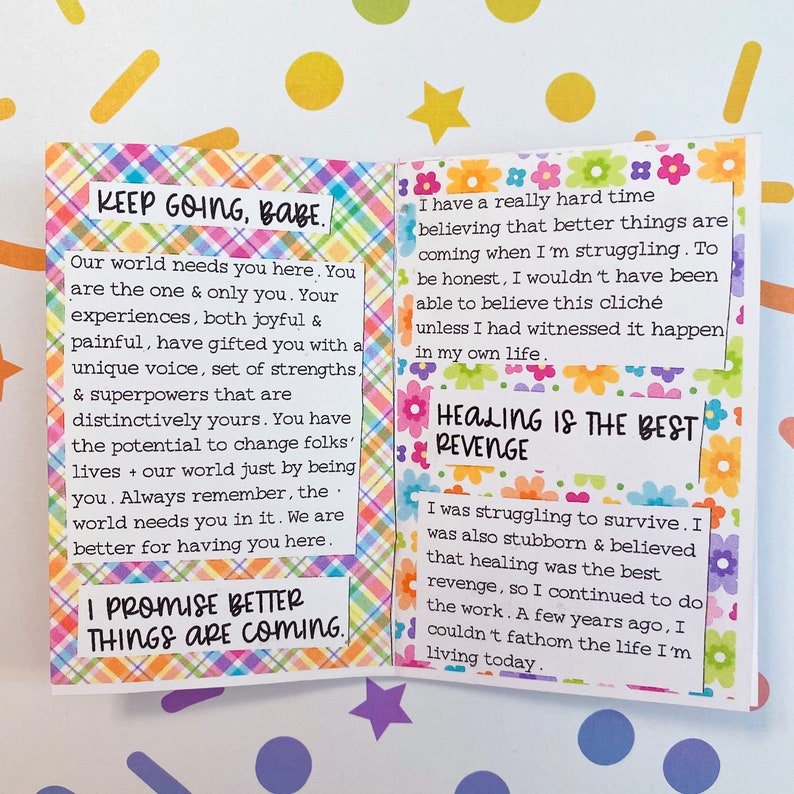 KEEP GOING, BABE.
Our world needs you here. You
are the one & only you. Your
experiences, both joyful &
painful, have gifted you with a
unique voice, set of strengths,
& superpowers that are
distinctively yours. You have
the potential to change folks'
lives + our world just by being
you. Always remember, the
world needs you in it. We are
better for having you here.
I PROMISE BETTER
THINGS ARE COMING.
I have a really hard time
believing that better things are
coming when I'm struggling. To
be honest, I wouldn't have been
able to believe this cliché
unless I had witnessed it happen
in my own life.
HEALING IS THE BEST
REVENGE
I was struggling to survive. I
was also stubborn & believed
that healing was the best
revenge, so I continued to do
the work. A few years ago, I
couldn't fathom the life I'm
living today.